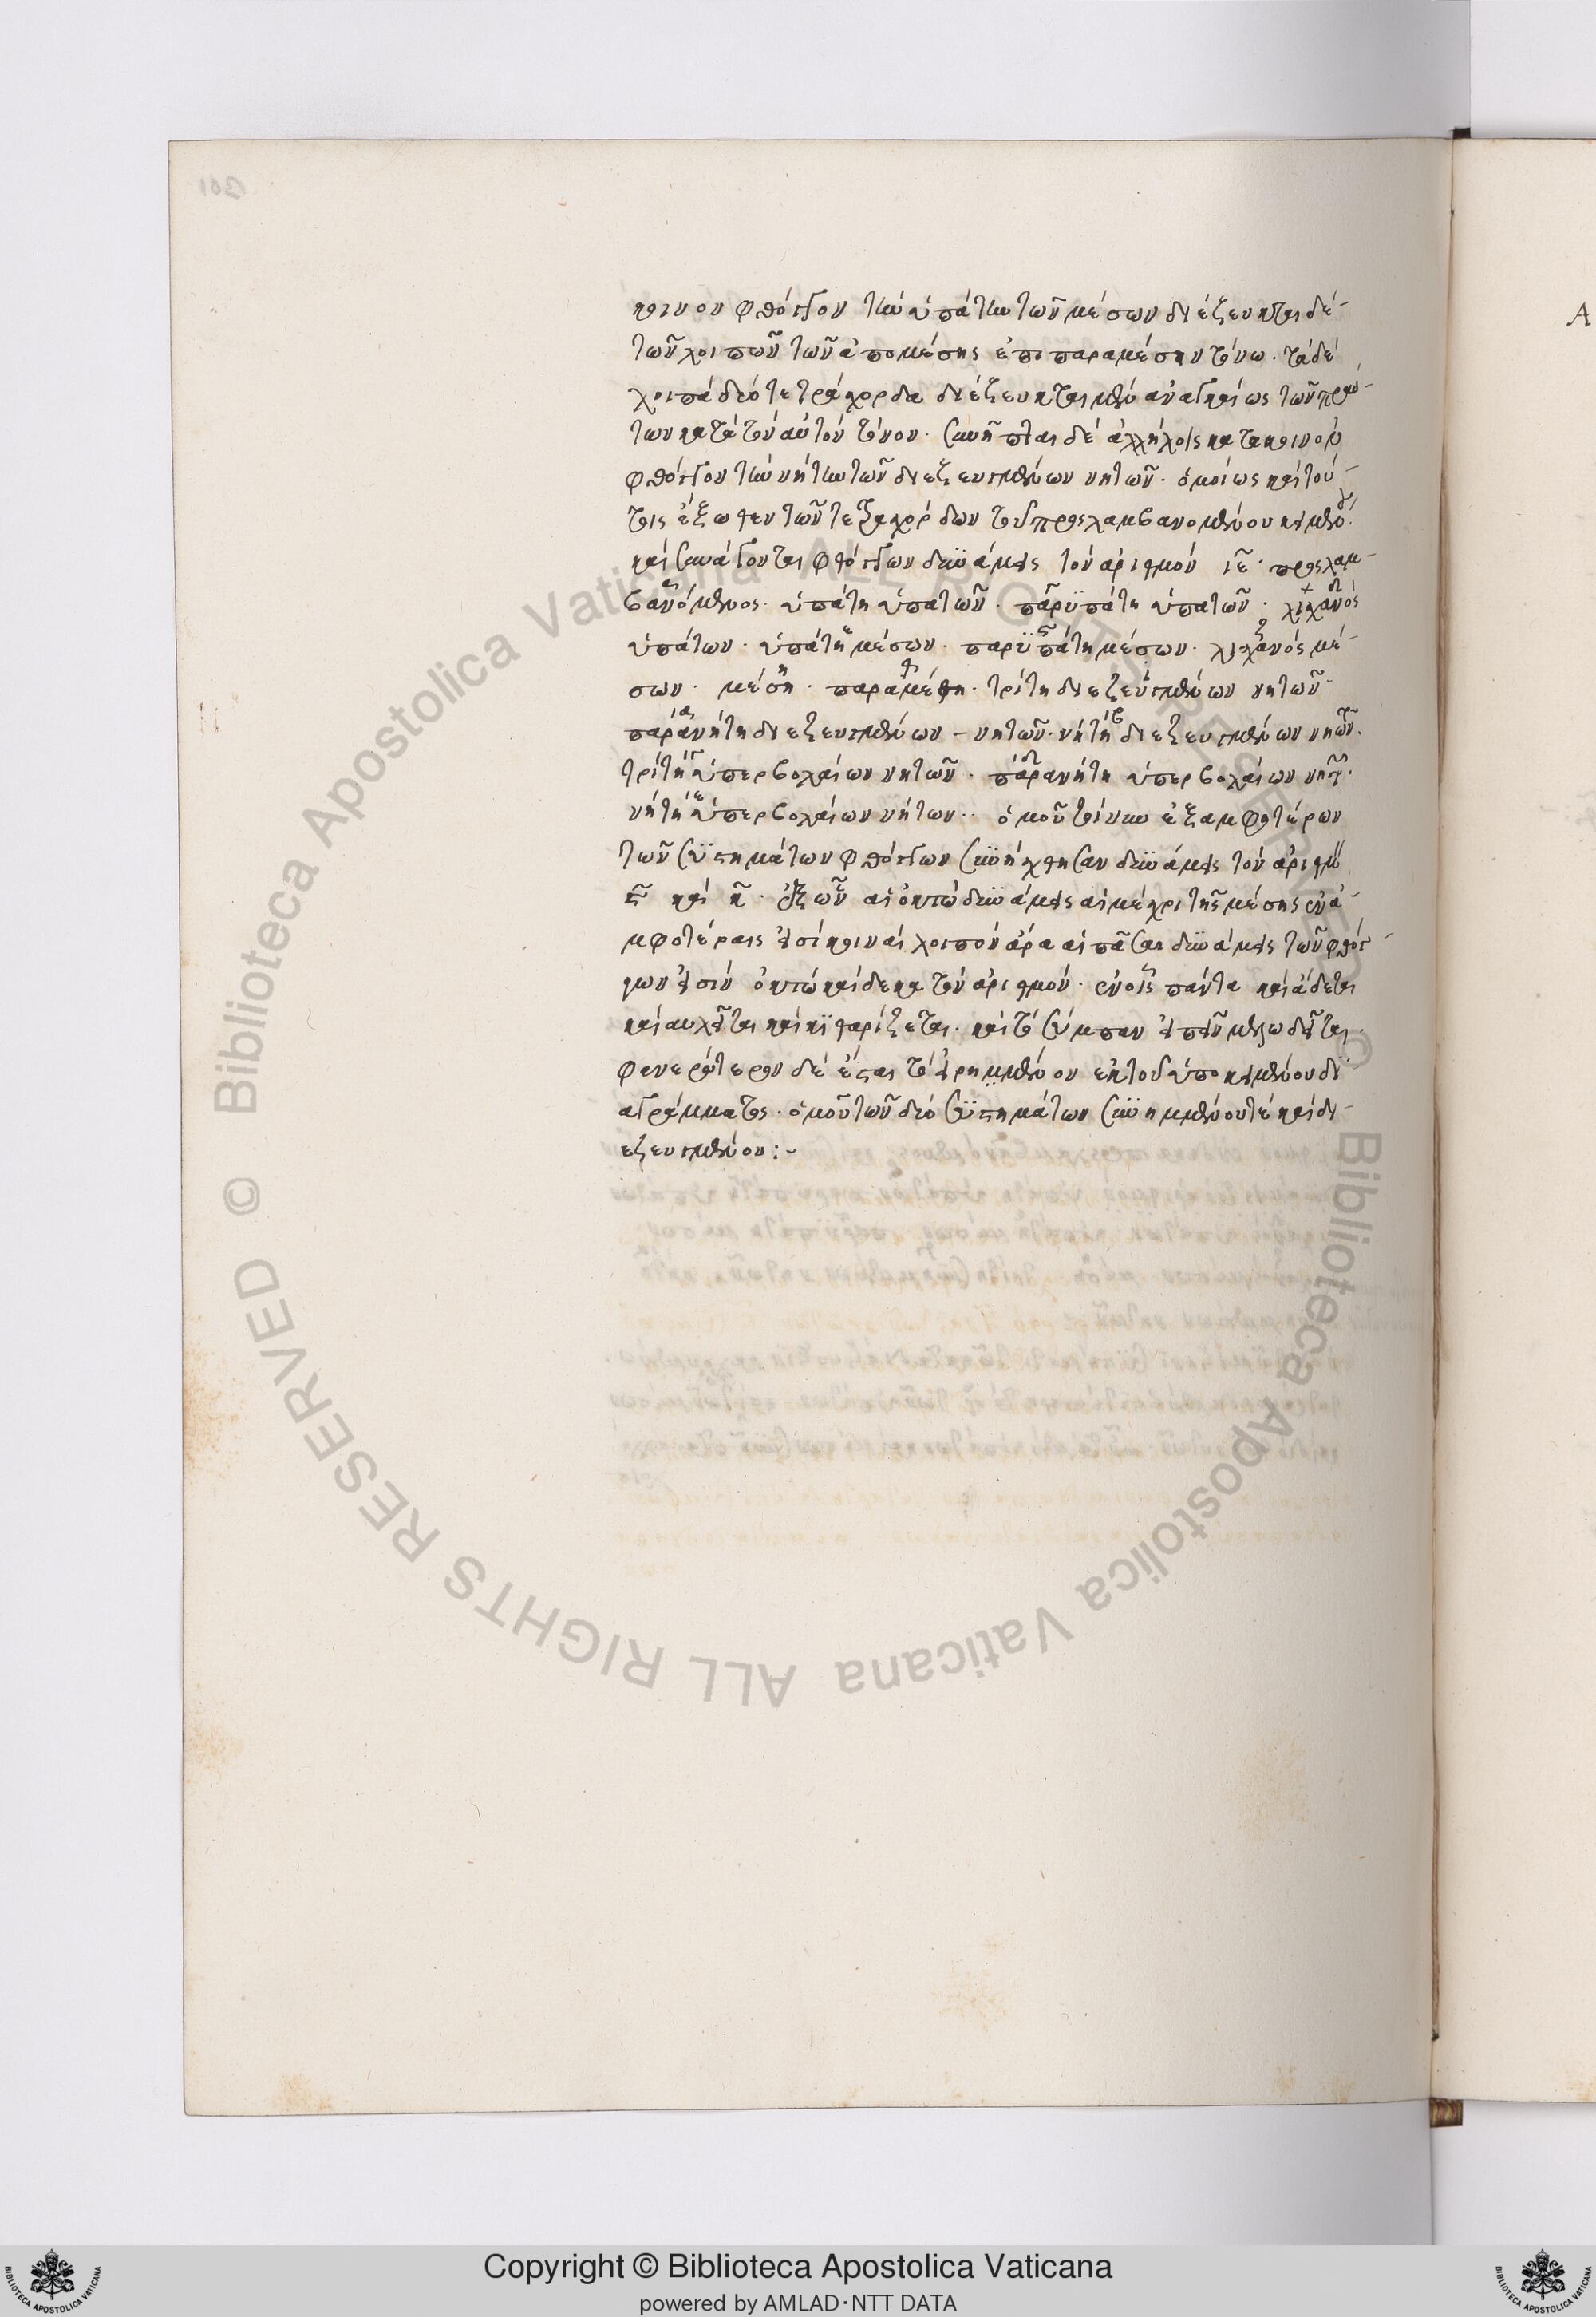 κοινὸν φθόγγον τὴν ὑπάτην τῶν μέσων διέζευκται δὲ
τῶν λοιπῶν τῶν ἀπὸ μέσης ἐπὶ παραμέσην τόνω. τὰ δὲ
λοιπὰ δύο τετράχορδα διέζευκται μὲν ἀναγκαίως τῶν πρώ-
των κατὰ τὸν αὐτὸν τόνον. συνῆπται δὲ ἀλλήλοις κατα κοινὸν
φθόγγον τὴν νήτην τῶν διεζευγμένων νητῶν. ὁμοίως καὶ τού-
τοις ἔξωθεν τῶν τετραχόρδων τοῦ προσλαμβανομένου κειμένου.
καὶ συνάγονται φθόγγων δυνάμεις τὸν ἀριθμὸν ιε. προσλαμ-
βανόμενος. ὑπάτη ὑπατῶν. παρυπάτη ὑπατῶν. λιχανός
ὑπάτων. ὑπάτη μέσων. παρυπάτη μέσων. λιχανός μέ-
σων. μέση. παραμέση. τρίτη διεζευγμένων νητῶν-
παρανήτη διεζευγμένων νητῶν. νήτη διεζευγμένων νητῶν.
τρίτη ὑπερβολαίων νητῶν. παρανήτη ὑπερβολαίων νητῶν.
νήτη ὑπερβολαίων νήτων.. ὁμοῦ τοίνυν ἐξ αμφοτέρων
τῶν συστημάτων φθόγγων συνήχθησαν δυνάμεις τὸν ἀριθμὸν
κϛ. ἐξ ὧν αἱ ὀκτὼ δυνάμεις αἱ μέχρι τῆς μέσης ἐν ἀ-
μφοτέραις εἰσὶ κοιναὶ λοιπὸν ἄρα αἱ πᾶσαι δυνάμεις τῶν φθόγ-
γων εἰσὶν ὀκτὼ καίδεκα τὸν ἀριθμόν. ἐν οἷς πάντα καὶ ἄδεται
καὶ αυλεῖται καὶ κιθαρίζεται. καὶ τὸ σύμπαν εἰπεῖν μελωδεῖται.
φανερώτερον δὲ ἔσται τὸ εἰρημμένον ἐκ τοῦ ὑποκειμένου δι
αγράμματος. ὁμοῦ τῶν δύο συστημάτων συνημμένου τὲ καὶ δι-
εζευγμένου:~
Α
Copyright © Biblioteca Apostolica Vaticana
powered by AMLAD·NTT DATA